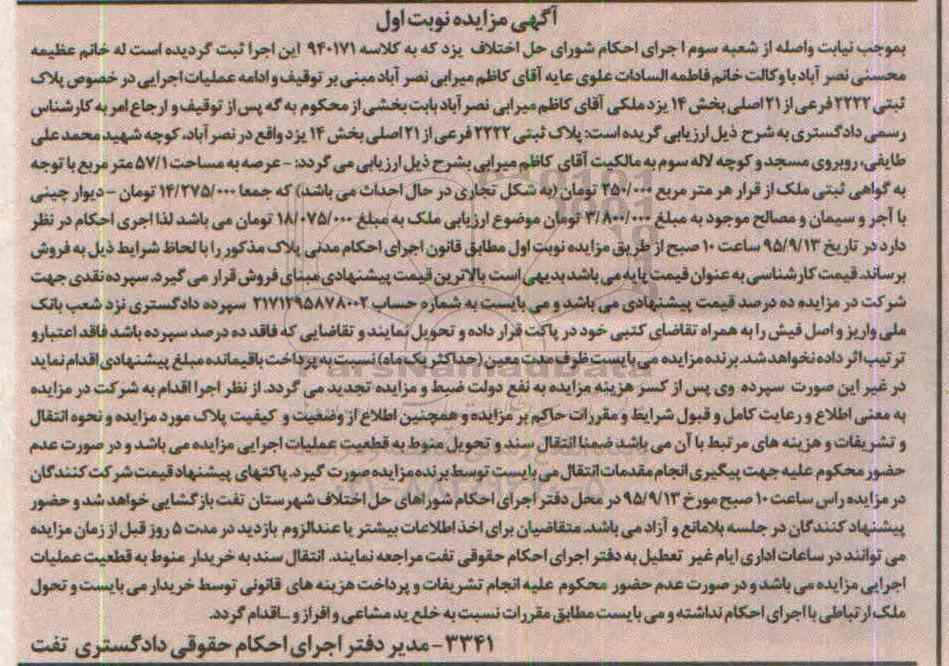 آگهی مزایده نوبت اول
بموجب نیابت واصله از شعبه سوم اجرای احکام شورای حل اختلاف یزد که به کلاسه ۹۴۰۱۷۱ این اجرا ثبت گردیده است له خانم عظیمه
محسنی نصر آباد با وکالت خانم فاطمه السادات علوی عایه آقای کاظم میرابی نصر آباد مبنی بر توقیف و ادامه عملیات اجرایی در خصوص پلاک
ثبتی ۲۲۲۲ فرعی از ۲۱ اصلی بخش ۱۴ یزد ملکی آقای کاظم میرابی نصر آباد بابت بخشی از محکوم به گه پس از توقیف و ارجاع امر به کارشناس
رسمی دادگستری به شرح ذیل ارزیابی گریده است: پلاک ثبتی ۲۲۲۲ فرعی از ۲۱ اصلی بخش ۱۴ یزد واقع در نصر آباد، کوچه شهید محمد علی
طایفی، روبروی مسجد و کوچه لاله سوم به مالکیت آقای کاظم میرابی بشرح ذیل ارزیابی می گردد: - عرصه به مساحت ۵۷/۱ متر مربع با توجه
به گواهی ثبتی ملک از قرار هر متر مربع ۲۵۰/۰۰۰ تومان (به شکل تجاری در حال احداث می باشد) که جمعا ۱۴/۲۷۵/۰۰۰ تومان - دیوار چینی
با آجر و سیمان و مصالح موجود به مبلغ ۳/۸۰۰/۰۰۰ تومان موضوع ارزیابی ملک به مبلغ ۱۸/۰۷۵/۰۰۰ تومان می باشد لذا اجری احکام در نظر
دارد در تاریخ ۹۵/۹/۱۳ ساعت ۱۰ صبح از طریق مزایده نوبت اول مطابق قانون اجرای احکام مدنی پلاک مذکور را با لحاظ شرایط ذیل به فروش
برساند. قیمت کارشناسی به عنوان قیمت پایه می باشد بدیهی است بالاترین قیمت پیشنهادی مبنای فروش قرار می گیرد. سپرده نقدی جهت
شرکت در مزایده ده درصد قیمت پیشنهادی می باشد و می بایست به شماره حساب ۲۱۷۱۲۹۵۸۷۸۰۰۲ سپرده دادگستری نزد شعب بانک
ملی واریز و اصل فیش را به همراه تقاضای کتبی خود در پاکت قرار داده و تحویل نمایند و تقاضایی که فاقد ده درصد سپرده باشد فاقد اعتبار و
ترتیب اثر داده نخواهد شد. برنده مزایده می بایست ظرف مدت معین (حداکثر یک ماه) نسبت به پرداخت باقیمانده مبلغ پیشنهادی اقدام نماید
در غیر این صورت سپرده وی پس از کسر هزینه مزایده به نفع دولت ضبط و مزایده تجدید می گردد. از نظر اجرا اقدام به شرکت در مزایده
به معنی اطلاع و رعایت کامل و قبول شرایط و مقررات حاکم بر مزایده و همچنین اطلاع از وضعیت و کیفیت پلاک مورد مزایده و نحوه انتقال
و تشریفات و هزینه های مرتبط با آن می باشد ضمنا انتقال سند و تحویل منوط به قطعیت عملیات اجرایی مزایده می باشد و در صورت عدم
حضور محکوم علیه جهت پیگیری انجام مقدمات انتقال می بایست توسط برنده مزایده صورت گیرد. پاکتهای پیشنهاد قیمت شرکت کنندگان
در مزایده راس ساعت ۱۰ صبح مورخ ۹۵/۹/۱۳ در محل دفتر اجرای احکام شوراهای حل اختلاف شهرستان تفت بازگشایی خواهد شد و حضور
پیشنهاد کنندگان در جلسه بلامانع و آزاد می باشد. متقاضیان برای اخذ اطلاعات بیشتر یا عندالزوم بازدید در مدت ۵ روز قبل از زمان مزایده
می توانند در ساعات اداری ایام غیر تعطیل به دفتر اجرای احکام حقوقی تفت مراجعه نمایند. انتقال سند به خریدار منوط به قطعیت عملیات
اجرایی مزایده می باشد و در صورت عدم حضور محکوم علیه انجام تشریفات و پرداخت هزینه های قانونی توسط خریدار می بایست و تحول
ملک ارتباطی با اجرای احکام نداشته و می بایست مطابق مقررات نسبت به خلع ید مشاعی و افراز و ..اقدام گردد.
۳۳۴۱- مدیر دفتر اجرای احکام حقوقی دادگستری تفت
ParsNamadData